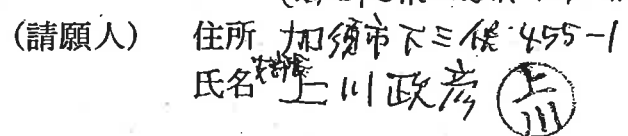 (請願人) 住所 加須市下三俣455-1
氏名 上川政彦 上川